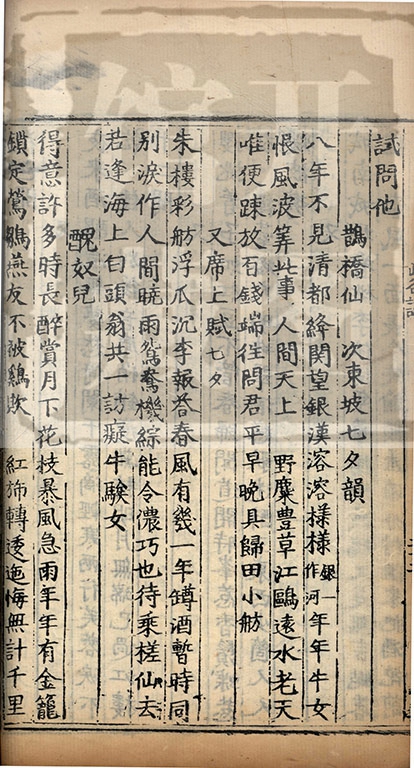 試問他
鵲橋仙 次東坡七夕韻
八年不見清都絳闕望銀漢溶溶漾漾銀一作河年年牛女
恨風波筭此事人間天上 野麋豐草江鷗遠水老天
唯便踈放百錢端往問君平早晚具歸田小舫
又席上賦七夕
朱樓彩舫浮瓜沉李報荅春風有幾一年罇酒暫時同
别淚作人間曉雨鴛鴦機綜能令儂巧也待乘槎仙去
若逢海上白頭翁共一訪癡牛騃女
醜奴兒
得意許多時長醉賞月下花枝暴風急雨年年有金籠
鎖定鶯雛燕友不被鷄欺 紅斾轉逶迤悔無計千里